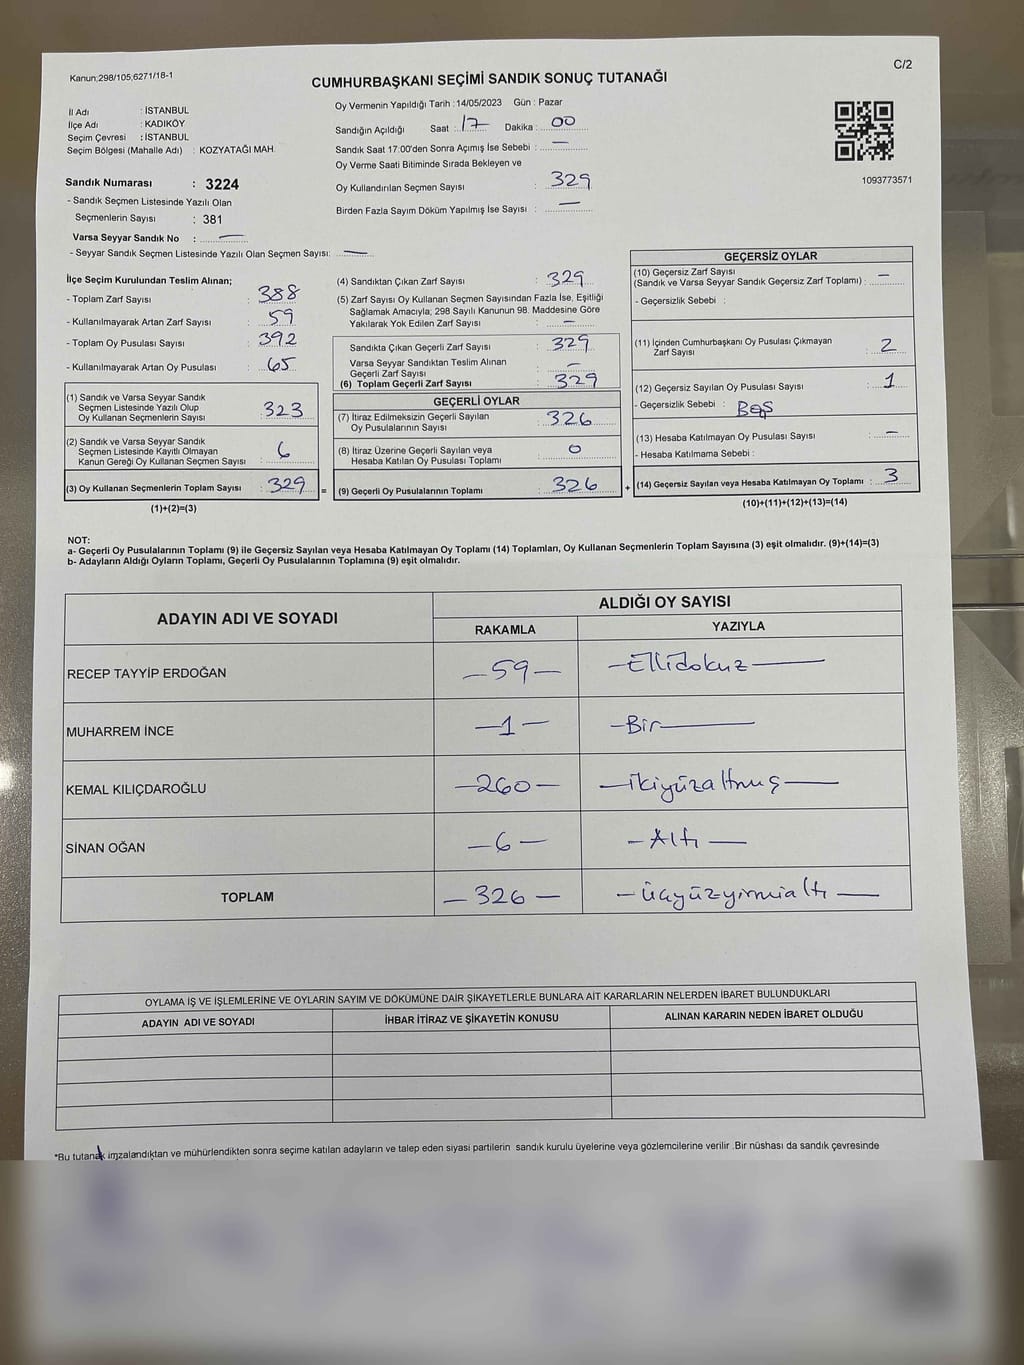 Kanun;298/105,6271/18-1
C/2
CUMHURBAŞKANI SEÇİMİ SANDIK SONUÇ TUTANAĞI
İl Adı : İSTANBUL
İlçe Adı : KADIKÖY
Seçim Çevresi : İSTANBUL
Seçim Bölgesi (Mahalle Adı) : KOZYATAĞI MAH.
Sandık Numarası : 3224
- Sandık Seçmen Listesinde Yazılı Olan
Seçmenlerin Sayısı : 381
Varsa Seyyar Sandık No : —
- Seyyar Sandık Seçmen Listesinde Yazılı Olan Seçmen Sayısı: —
Oy Vermenin Yapıldığı Tarih : 14/05/2023 Gün : Pazar
Sandığın Açıldığı Saat : 17 Dakika : 00
Sandık Saat 17:00'den Sonra Açımış İse Sebebi : —
Oy Verme Saati Bitiminde Sırada Bekleyen ve
Oy Kullandırılan Seçmen Sayısı : 329
Birden Fazla Sayım Döküm Yapılmış İse Sayısı : —
1093773571
İlçe Seçim Kurulundan Teslim Alınan;
- Toplam Zarf Sayısı : 388
- Kullanılmayarak Artan Zarf Sayısı : 59
- Toplam Oy Pusulası Sayısı : 392
- Kullanılmayarak Artan Oy Pusulası : 65
(1) Sandık ve Varsa Seyyar Sandık
Seçmen Listesinde Yazılı Olup
Oy Kullanan Seçmenlerin Sayısı : 323
(2) Sandık ve Varsa Seyyar Sandık
Seçmen Listesinde Kayıtlı Olmayan
Kanun Gereği Oy Kullanan Seçmen Sayısı : 6
(3) Oy Kullanan Seçmenlerin Toplam Sayısı : 329 =
(1)+(2)=(3)
(4) Sandıktan Çıkan Zarf Sayısı : 329
(5) Zarf Sayısı Oy Kullanan Seçmen Sayısından Fazla İse, Eşitliği
Sağlamak Amacıyla; 298 Sayılı Kanunun 98. Maddesine Göre
Yakılarak Yok Edilen Zarf Sayısı : —
Sandıkta Çıkan Geçerli Zarf Sayısı : 329
Varsa Seyyar Sandıktan Teslim Alınan
Geçerli Zarf Sayısı : —
(6) Toplam Geçerli Zarf Sayısı : 329
GEÇERLİ OYLAR
(7) İtiraz Edilmeksizin Geçerli Sayılan
Oy Pusulalarının Sayısı : 326
(8) İtiraz Üzerine Geçerli Sayılan veya
Hesaba Katılan Oy Pusulası Toplamı : 0
(9) Geçerli Oy Pusulalarının Toplamı : 326 +
GEÇERSİZ OYLAR
(10) Geçersiz Zarf Sayısı
(Sandık ve Varsa Seyyar Sandık Geçersiz Zarf Toplamı) : —
- Geçersizlik Sebebi :
(11) İçinden Cumhurbaşkanı Oy Pusulası Çıkmayan
Zarf Sayısı : 2
(12) Geçersiz Sayılan Oy Pusulası Sayısı : 1
- Geçersizlik Sebebi : BOŞ
(13) Hesaba Katılmayan Oy Pusulası Sayısı : —
- Hesaba Katılmama Sebebi :
(14) Geçersiz Sayılan veya Hesaba Katılmayan Oy Toplamı : 3
(10)+(11)+(12)+(13)=(14)
NOT:
a- Geçerli Oy Pusulalarının Toplamı (9) ile Geçersiz Sayılan veya Hesaba Katılmayan Oy Toplamı (14) Toplamları, Oy Kullanan Seçmenlerin Toplam Sayısına (3) eşit olmalıdır. (9)+(14)=(3)
b- Adayların Aldığı Oyların Toplamı, Geçerli Oy Pusulalarının Toplamına (9) eşit olmalıdır.
ADAYIN ADI VE SOYADI
ALDIĞI OY SAYISI
RAKAMLA YAZIYLA
RECEP TAYYİP ERDOĞAN —59— —Ellidokuz—
MUHARREM İNCE —1— —Bir—
KEMAL KILIÇDAROĞLU —260— —İkiyüzaltmış—
SİNAN OĞAN —6— —Altı—
TOPLAM —326— —Üçyüzyirmialtı—
OYLAMA İŞ VE İŞLEMLERİNE VE OYLARIN SAYIM VE DÖKÜMÜNE DAİR ŞİKAYETLERLE BUNLARA AİT KARARLARIN NELERDEN İBARET BULUNDUKLARI
ADAYIN ADI VE SOYADI İHBAR İTİRAZ VE ŞİKAYETİN KONUSU ALINAN KARARIN NEDEN İBARET OLDUĞU
*Bu tutanak imzalandıktan ve mühürlendikten sonra seçime katılan adayların ve talep eden siyasi partilerin sandık kurulu üyelerine veya gözlemcilerine verilir .Bir nüshası da sandık çevresinde